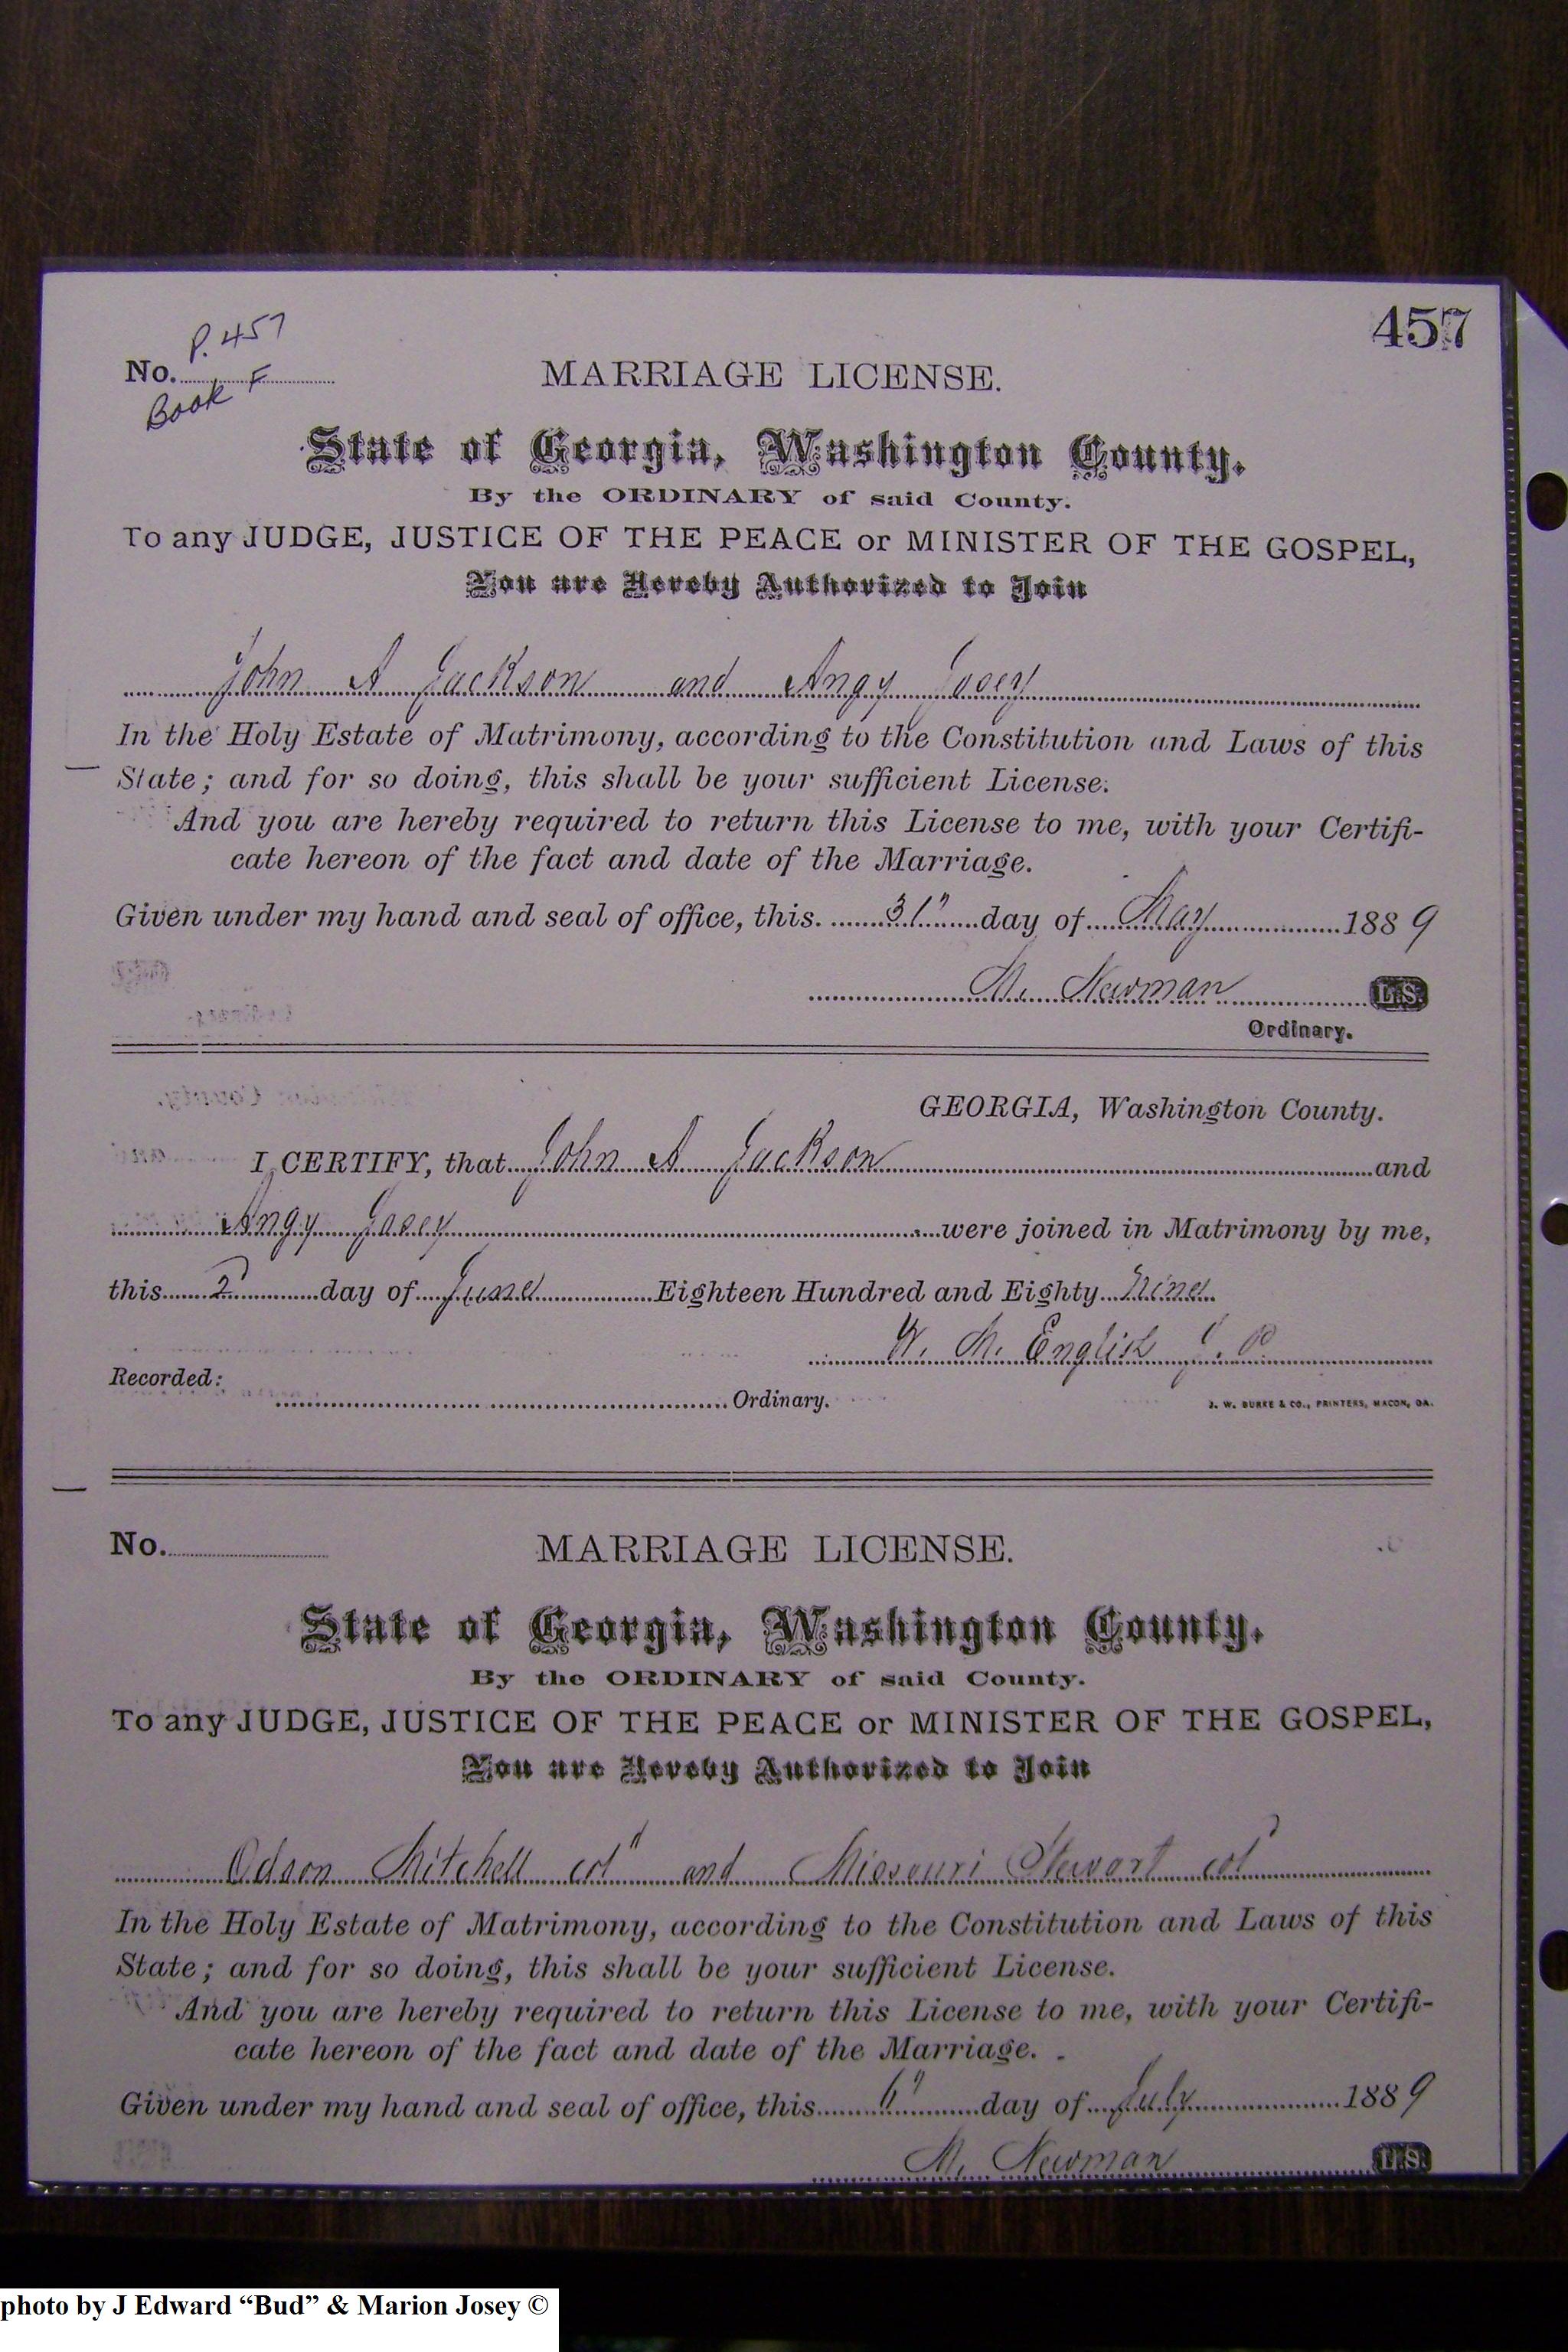 457
P. 457
No. MARRIAGE LICENSE.
Book F
State of Georgia, Washington County.
By the ORDINARY of said County.
To any JUDGE, JUSTICE OF THE PEACE or MINISTER OF THE GOSPEL,
You are Hereby Authorized to Join
John A Jackson and Angy Josey
In the Holy Estate of Matrimony, according to the Constitution and Laws of this
State; and for so doing, this shall be your sufficient License.
And you are hereby required to return this License to me, with your Certifi-
cate hereon of the fact and date of the Marriage.
Given under my hand and seal of office, this 31" day of May 1889
M. Newman L.S.
Ordinary.
GEORGIA, Washington County.
I CERTIFY, that John A Jackson and
Angy Josey were joined in Matrimony by me,
this 2 day of June Eighteen Hundred and Eighty Nine
W. M. English J. P.
Recorded:
Ordinary. J. W. BURKE & CO., PRINTERS, MACON, GA.
No. MARRIAGE LICENSE.
State of Georgia, Washington County.
By the ORDINARY of said County.
To any JUDGE, JUSTICE OF THE PEACE or MINISTER OF THE GOSPEL,
You are Hereby Authorized to Join
Odson Mitchell col" and Missouri Stewart col"
In the Holy Estate of Matrimony, according to the Constitution and Laws of this
State; and for so doing, this shall be your sufficient License.
And you are hereby required to return this License to me, with your Certifi-
cate hereon of the fact and date of the Marriage.
Given under my hand and seal of office, this 6" day of July 1889
M. Newman L.S.
photo by J Edward “Bud” & Marion Josey ©